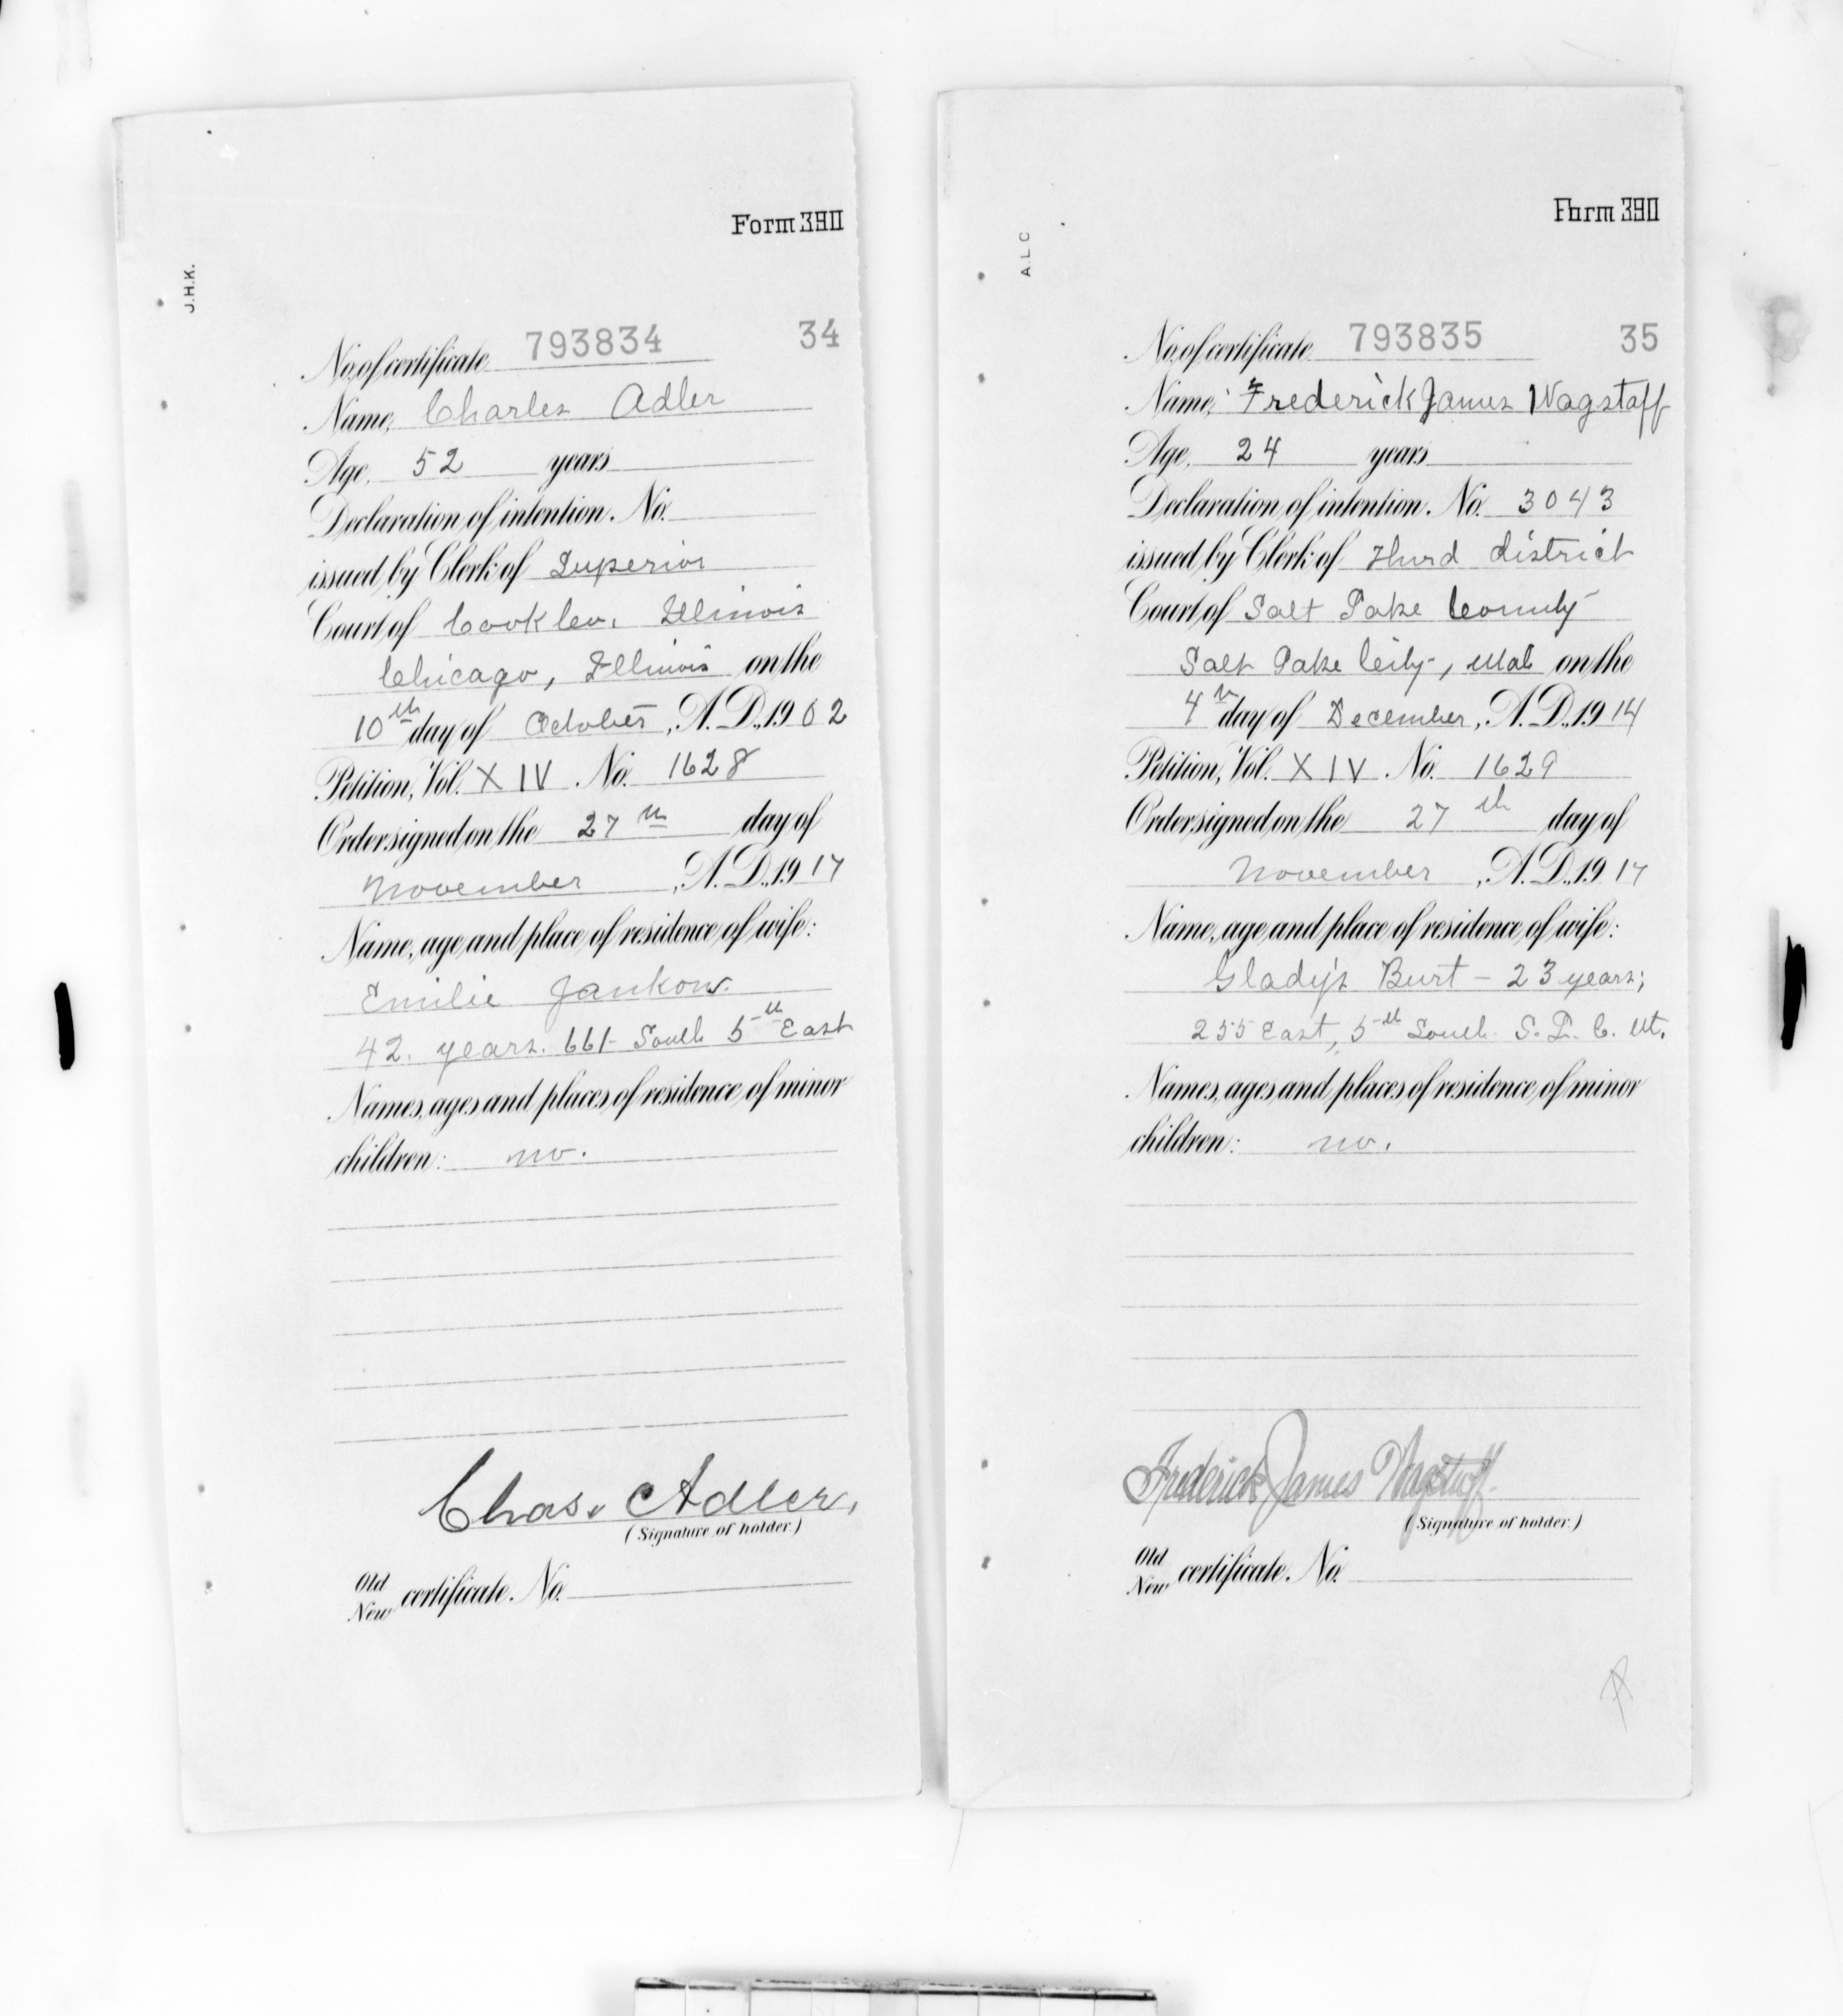 Form 390
J.H.K.
No. of certificate 793834 34
Name, Charles Adler
Age, 52 years
Declaration of intention. No.
issued by Clerk of Superior
Court of Cook Co., Illinois
Chicago, Illinois on the
10th day of October, A.D., 1902
Petition, Vol. XIV No. 1628
Order signed on the 27th day of
November, A.D., 1917
Name, age and place of residence of wife:
Emilie Jankow.
42. years. 661- South 5th East
Names, ages and places of residence of minor
children: no.
Chas. Adler,
(Signature of holder.)
Old
New certificate. No.
Form 390
A.L.C
No. of certificate 793835 35
Name, Frederick James Wagstaff
Age, 24 years
Declaration of intention. No. 3043
issued by Clerk of Third district
Court of Salt Lake County
Salt Lake City, Utah on the
4th day of December, A.D., 1914
Petition, Vol. XIV. No. 1629
Order signed on the 27th day of
November, A.D., 1917
Name, age and place of residence of wife:
Gladys Burt - 23 years;
255 East, 5th South S. L. C. Ut.
Names, ages and places of residence of minor
children: no.
Frederick James Wagstaff.
(Signature of holder.)
Old
New certificate. No.